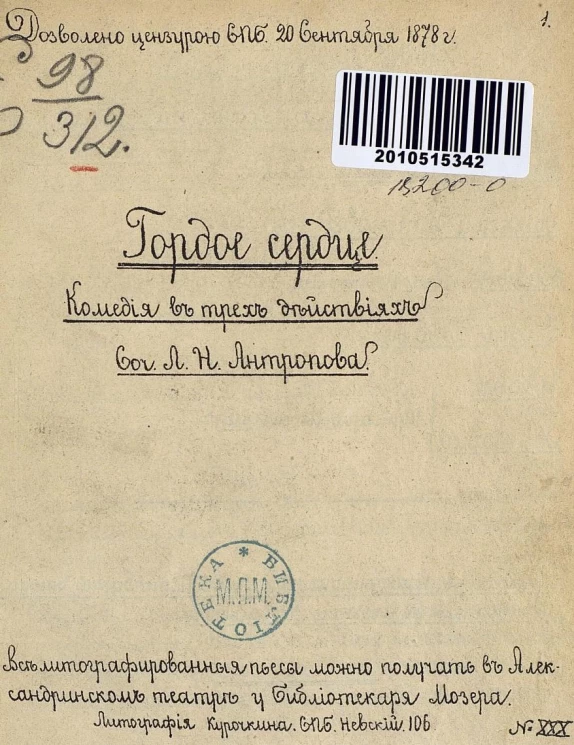 Дозволено цензурою СПБ. 20 Сентября 1878 г.
1.
98
312.
2010515342
Гордое сердце.
Комедія въ трехъ дѣйствіяхъ
Соч. Л. Н. Антропова.
БИБЛІОТЕКА *
М.П.М.
Всѣ литографированныя пьесы можно получать въ Алек-
сандринскомъ театрѣ у Библіотекаря Мозера.
Литографія Курочкина. СПБ. Невскій. 106.
№ XXX